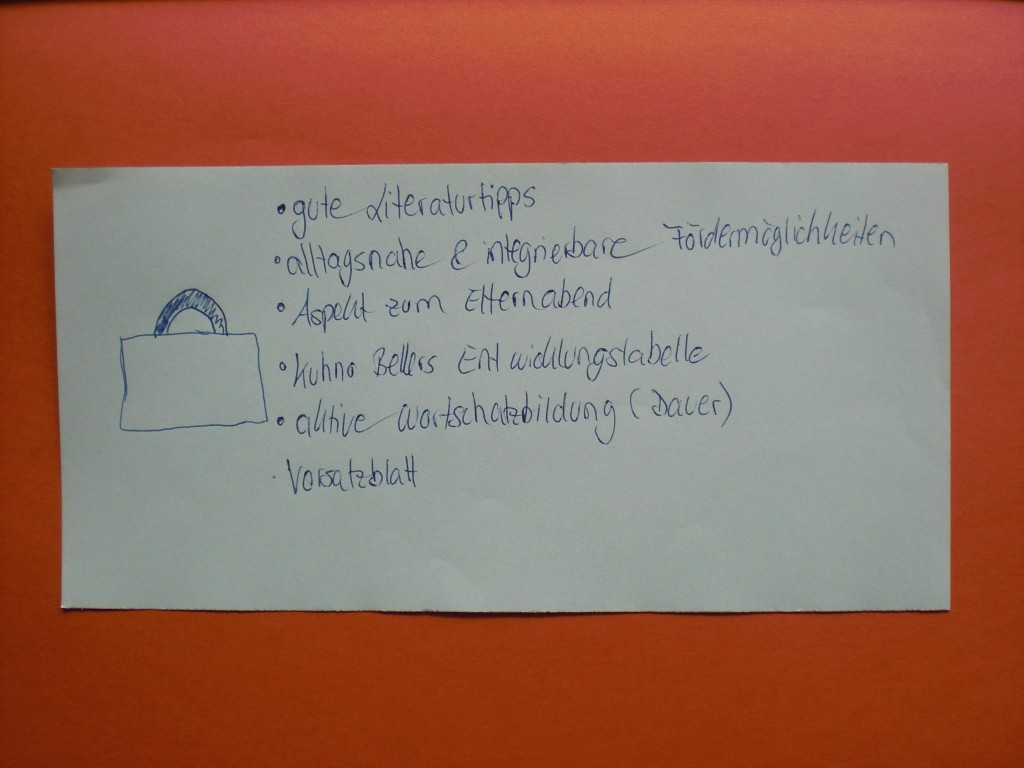 • gute Literaturtipps
• alltagsnahe & integrierbare Fördermöglichkeiten
• Aspekt zum Elternabend
• Kuhno Bellers Entwicklungstabelle
• aktive Wortschatzbildung (Dauer)
· Vorsatzblatt